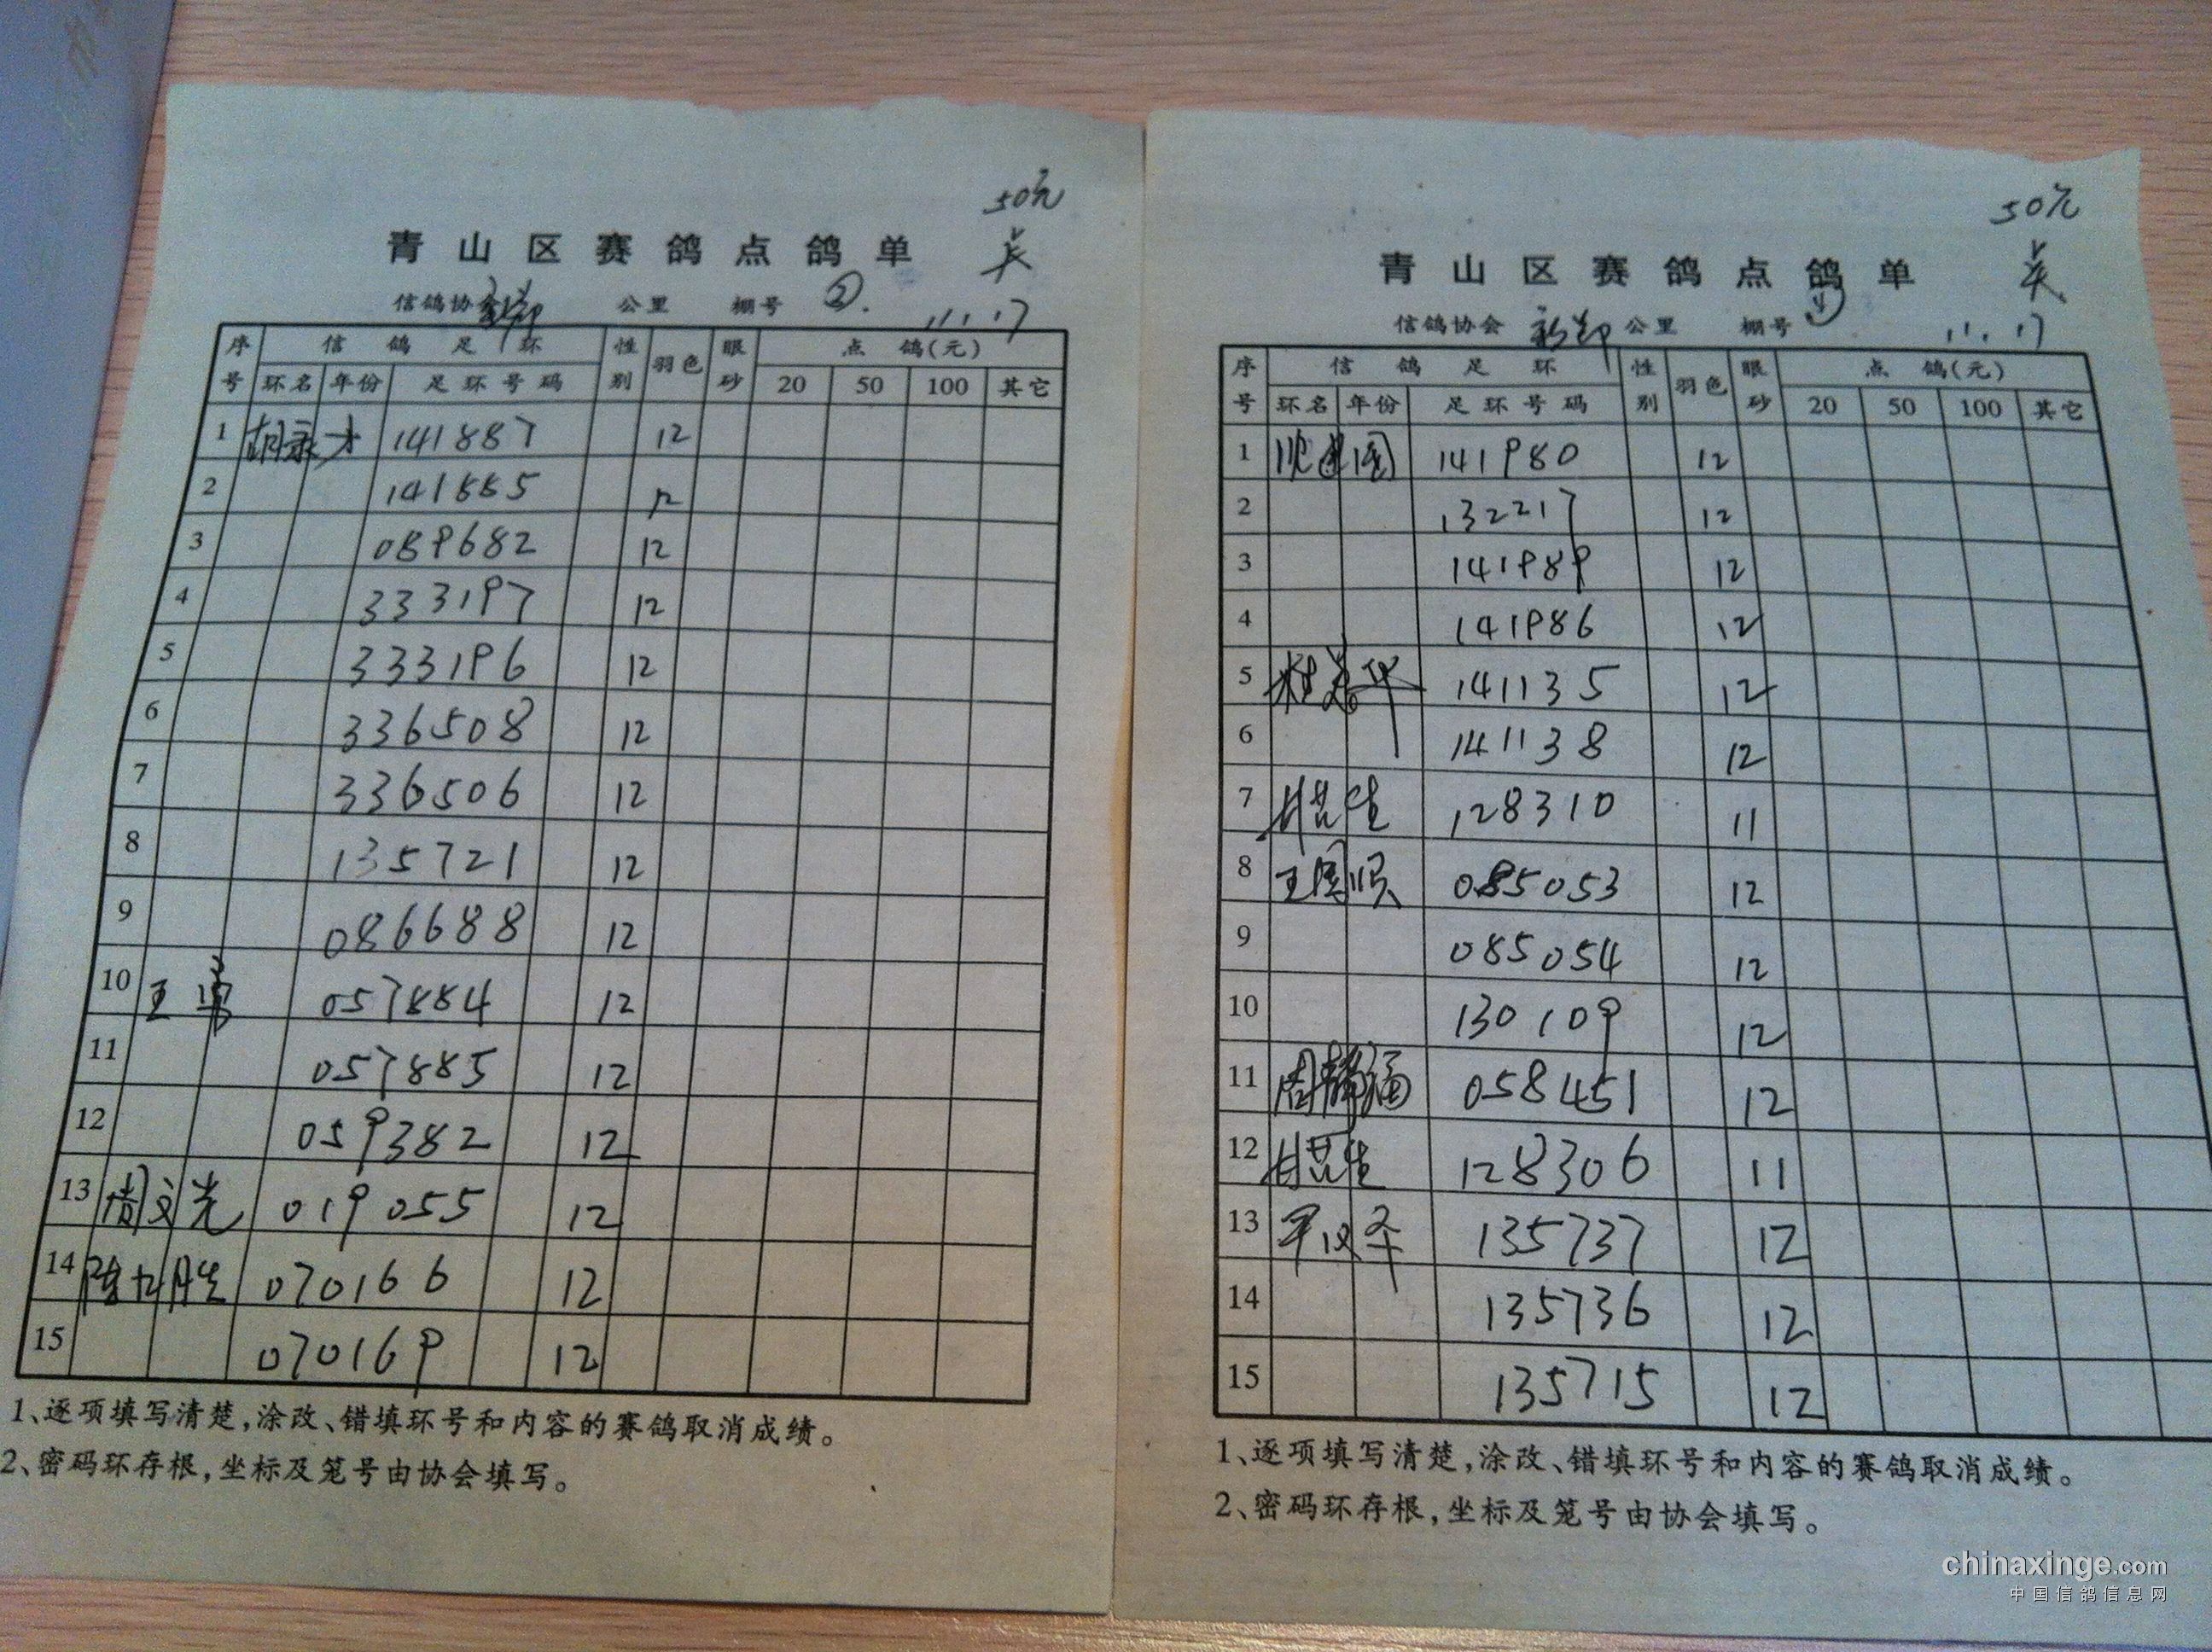 50元
青山区赛鸽点鸽单
信鸽协会 新郑 公里 棚号 ②
11.17
序号 信鸽足环 性别 羽色 眼砂 点鸽(元)
环名 年份 足环号码 20 50 100 其它
1 胡录才 141887 12
2 141885 12
3 089682 12
4 333197 12
5 333196 12
6 336508 12
7 336506 12
8 135721 12
9 086688 12
10 王 057884 12
11 057885 12
12 059382 12
13 周文光 019055 12
14 070166 12
15 070169 12
1、逐项填写清楚,涂改、错填环号和内容的赛鸽取消成绩。
2、密码环存根,坐标及笼号由协会填写。
50元
青山区赛鸽点鸽单
信鸽协会 新郑 公里 棚号
11.17
序号 信鸽足环 性别 羽色 眼砂 点鸽(元)
环名 年份 足环号码 20 50 100 其它
1 沈建国 141980 12
2 132217 12
3 141989 12
4 141986 12
5 141135 12
6 141138 12
7 128310 11
8 王国顺 085053 12
9 085054 12
10 130109 12
11 周静福 058451 12
12 128306 11
13 135737 12
14 135736 12
15 135715 12
1、逐项填写清楚,涂改、错填环号和内容的赛鸽取消成绩。
2、密码环存根,坐标及笼号由协会填写。
chinaxinge.com
中国信鸽信息网